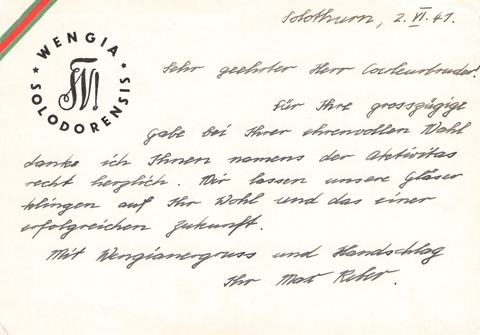 WENGIA
SOLODORENSIS
Solothurn, 2. VI. 41.
Sehr geehrter Herr Couleurbruder!
Für Ihre grosszügige
Gabe bei Ihrer ehrenvollen Wahl
danke ich Ihnen namens der Aktivitas
recht herzlich. Wir lassen unsere Gläser
klingen auf Ihr Wohl und das einer
erfolgreichen Zukunft.
Mit Wengianergruss und Handschlag
Ihr Max Reber.